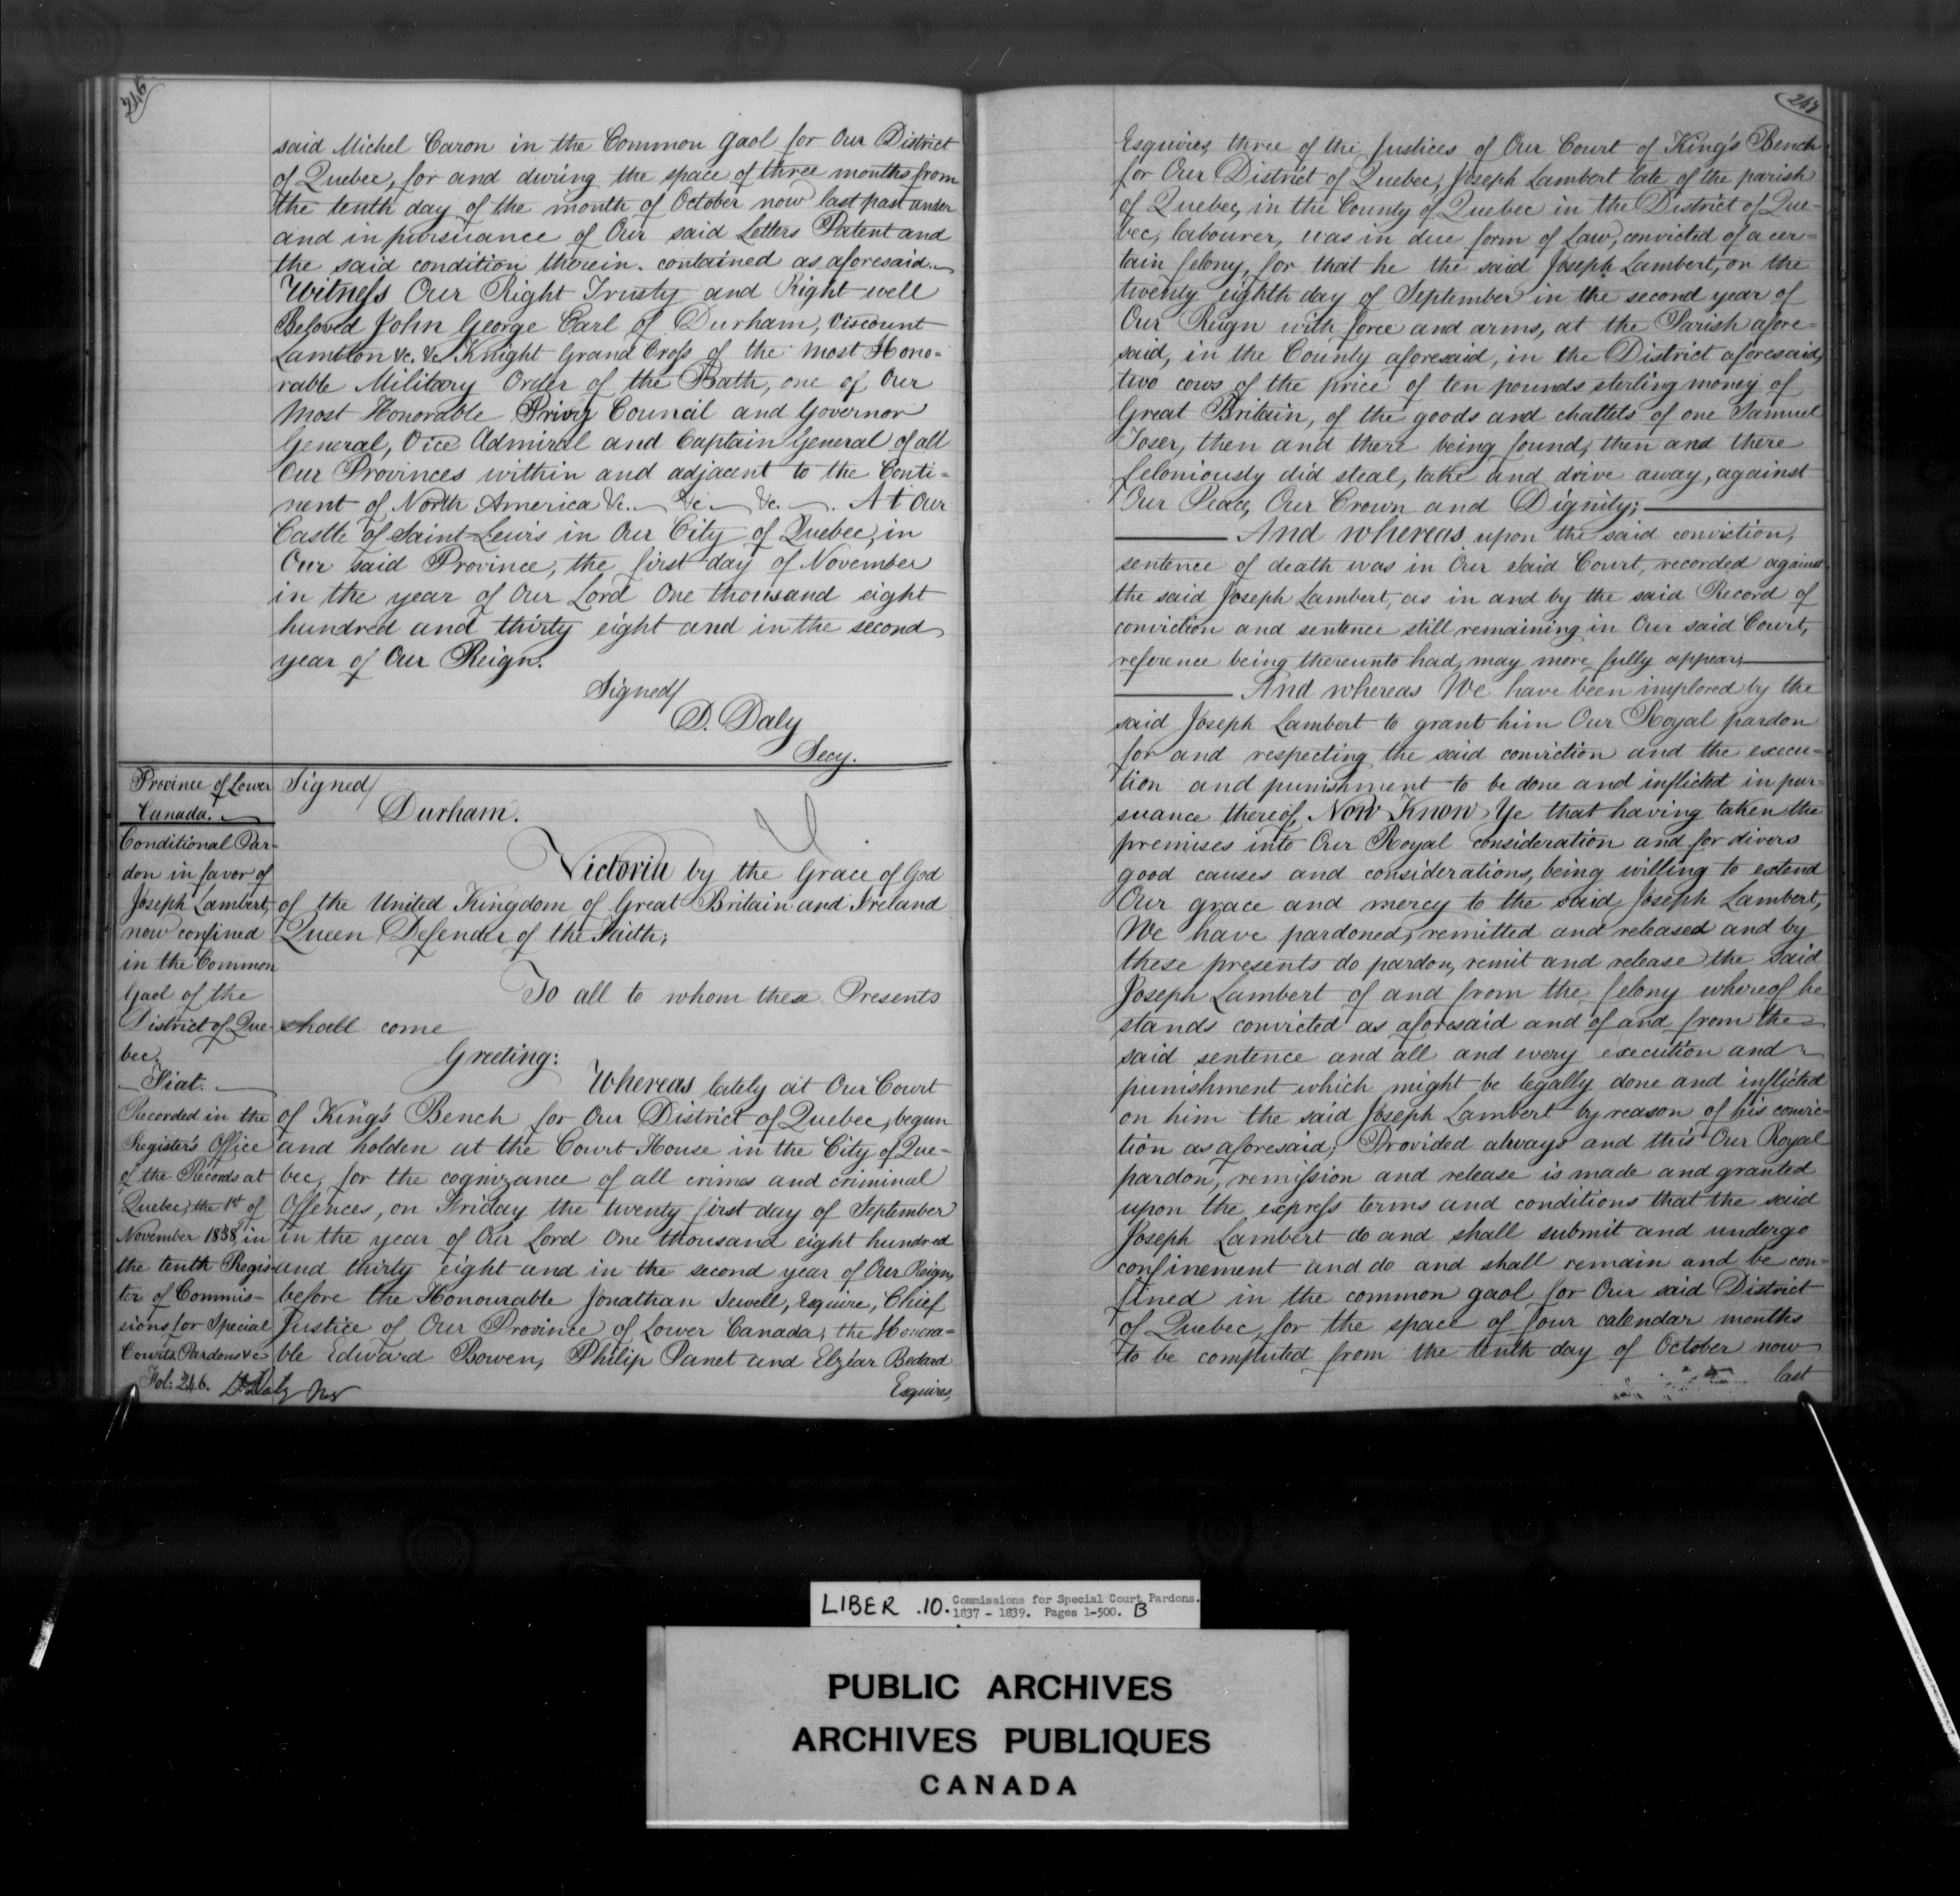 246
said Michel Caron in the Common Gaol for Our District
of Quebec, for and during the space of three months from
the tenth day of the month of October now last past under
and in pursuance of Our said Letters Patent and
the said condition therein contained as aforesaid.
Witness Our Right Trusty and Right well
Beloved John George Earl of Durham, Viscount
Lambton &c. &c Knight Grand Cross of the most Hono-
rable Military Order of the Bath, one of Our
most Honorable Privy Council and Governor
General, Vice Admiral and Captain General of all
Our Provinces within and adjacent to the Conti-
nent of North America &c. &c. &c. At Our
Castle of Saint Lewis in Our City of Quebec, in
Our said Province, the first day of November
in the year of Our Lord One thousand eight
hundred and thirty eight and in the second
year of Our Reign.
Signed/
D. Daly
Secy.
Province of Lower
Canada.
Conditional Par-
don in favor of
Joseph Lambert,
now confined
in the Common
Gaol of the
District of Que-
bec.
Fiat.
Recorded in the
Register's Office
of the Records at
Quebec, the 1st of
November 1838, in
the tenth Regis-
ter of Commis-
sions for Special
Courts Pardons &c
Fol: 246. D. Daly
Signed/
Durham.
Victoria by the Grace of God
of the United Kingdom of Great Britain and Ireland
Queen Defender of the Faith;
To all to whom these Presents
shall come
Greeting:
Whereas lately at Our Court
of King's Bench for Our District of Quebec, begun
and holden at the Court House in the City of Que-
bec, for the cognizance of all crimes and criminal
Offences, on Friday the twenty first day of September
in the year of Our Lord One thousand eight hundred
and thirty eight and in the second year of Our Reign,
before the Honourable Jonathan Sewell, Esquire, Chief
Justice of Our Province of Lower Canada, the Honora-
ble Edward Bowen, Philip Panet and Elzéar Bedard
Esquires,
247
Esquires, three of the Justices of Our Court of King's Bench
for Our District of Quebec, Joseph Lambert late of the parish
of Quebec, in the County of Quebec in the District of Que-
bec, labourer, was in due form of Law, convicted of a cer-
tain felony, for that he the said Joseph Lambert, on the
twenty eighth day of September in the second year of
Our Reign with force and arms, at the Parish afore-
said, in the County aforesaid, in the District aforesaid,
two cows of the price of ten pounds sterling money of
Great Britain, of the goods and chattels of one Samuel
Toser, then and there being found, then and there
feloniously did steal, take and drive away, against
Our Peace, Our Crown and Dignity;
And whereas upon the said conviction,
sentence of death was in Our said Court, recorded against
the said Joseph Lambert, as in and by the said Record of
conviction and sentence still remaining in Our said Court,
reference being thereunto had, may more fully appear;
And whereas We have been implored by the
said Joseph Lambert to grant him Our Royal pardon
for and respecting the said conviction and the execu-
tion and punishment to be done and inflicted in pur-
suance thereof, Now Know Ye that having taken the
premises into Our Royal consideration and for divers
good causes and considerations, being willing to extend
Our grace and mercy to the said Joseph Lambert,
We have pardoned, remitted and released and by
these presents do pardon, remit and release the said
Joseph Lambert of and from the felony whereof he
stands convicted as aforesaid and of and from the
said sentence and all and every execution and
punishment which might be legally done and inflicted
on him the said Joseph Lambert by reason of his convic-
tion as aforesaid; Provided always and this Our Royal
pardon, remission and release is made and granted
upon the express terms and conditions that the said
Joseph Lambert do and shall submit and undergo
confinement and do and shall remain and be con-
fined in the common gaol for Our said District
of Quebec for the space of four calendar months
to be computed from the tenth day of October now
last
LIBER .10. Commissions for Special Court Pardons.
1837 - 1839. Pages 1-500. B
PUBLIC ARCHIVES
ARCHIVES PUBLIQUES
CANADA